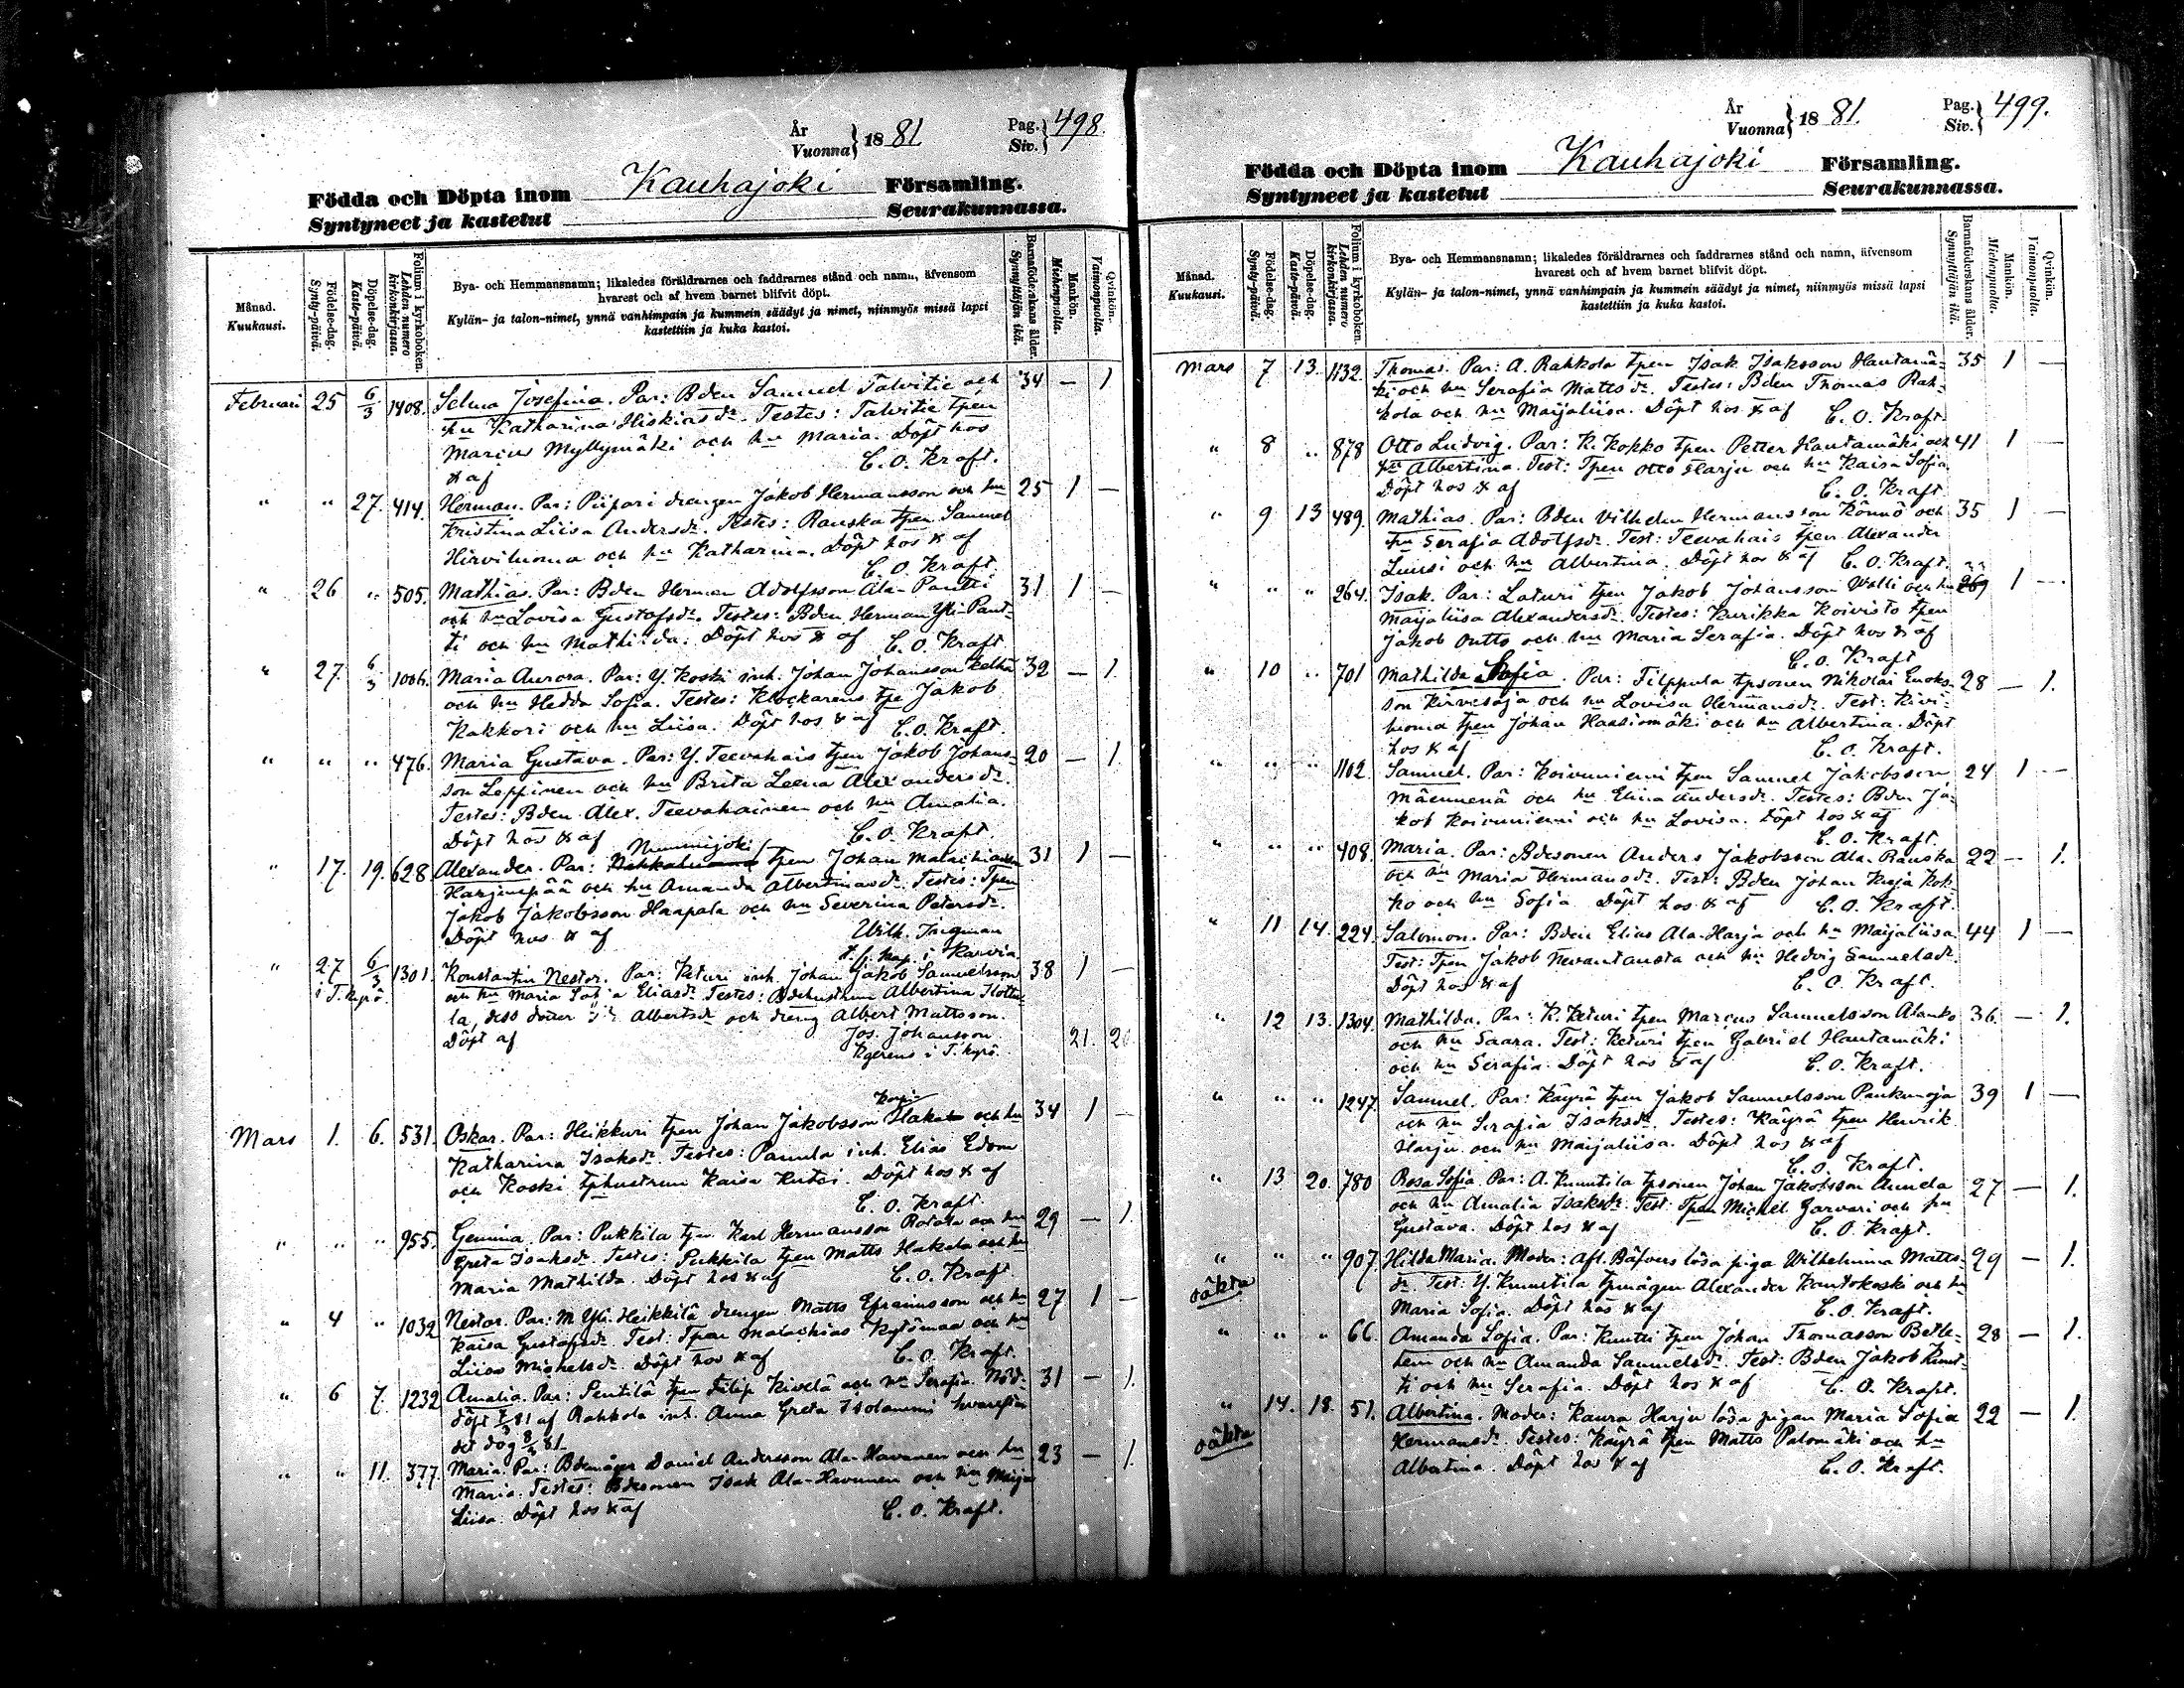 År
Vuonna } 18 81.
Pag.
Siv. } 498.
Födda och Döpta inom Kauhajoki Församling.
Syntyneet ja kastetut Seurakunnassa.
Månad.
Kuukausi.
Födelse-dag.
Synty-päivä.
Döpelse-dag.
Kaste-päivä.
Folium i kyrkoboken.
Lehden numero kirkonkirjassa.
Bya- och Hemmansnamn; likaledes föräldrarnes och faddrarnes stånd och namn, äfvensom
hvarest och af hvem barnet blifvit döpt.
Kylän- ja talon-nimet, ynnä vanhimpain ja kummein säädyt ja nimet, niinmyös missä lapsi
kastettiin ja kuka kastoi.
Barnaföderskans ålder.
Synnyttäjän ikä.
Mankön.
Miehenpuolta.
Qvinkön.
Vaimonpuolta.
Februari 25 6/3 1408. Selma Josefina. Par: Bden Samuel Talvitie och 34 — 1
hu Katharina Hiskiasdr. Testes: Talvitie tpen
Marcus Myllymäki och hu Maria. Döpt hos
& af C. O. Kraft.
" " 27. 414. Herman. Par: Piipari drengen Jakob Hermansson och hu 25 1 —
Kristina Liisa Andersdr. Testes: Ranska tpen Samuel
Hirviluoma och hu Katharina. Döpt hos & af
C. O. Kraft.
" 26 " 505. Mathias. Par: Bden Herman Adolfsson Ala-Pantti 31 1 —
och hu Lovisa Gustafsdr. Testes: Bden Herman Yli-Pant-
ti och hu Mathilda. Döpt hos & af C. O. Kraft
" 27. 6/3 1006. Maria Aurora. Par: Y. Koski inh. Johan Johansson 32 — 1.
och hu Hedda Sofia. Testes: Klockarens tpe Jakob
Kakkori och hu Liisa. Döpt hos & af C. O. Kraft.
" " " 476. Maria Gustava. Par: Y. Teevahais tpen Jakob Johans- 20 — 1.
son Leppinen och hu Brita Leena Alexandersdr.
Testes: Bden Alex. Teevahainen och hu Amalia.
Döpt hos & af C. O. Kraft.
Nummijoki
" 17. 19. 628 Alexander. Par: tpen Johan Malachiasson 31 1 —
Harjunpää och hu Amanda Albertinasdr. Testes: Tpen
Jakob Jakobsson Haapala och hu Severina Petersdr.
Döpt hos & af Wilh.
t. f. kap. i Karvia
" 27 6/3 1301. Konstantin Nestor. Par: Keturi inh. Johan Jakob Samuelsson 38 1 —
i T. kyrö. och hu Maria Sofia Eliasdr. Testes: Bdehustrun Albertina
la, dess dotter Albertsdr och dreng Albert Mattsson.
Döpt af Jos. Johansson 21. 20
Kgerens i T. kyrö.
Mars 1. 6. 531. Oskar. Par: Heikkuri tpen Johan Jakobsson och hu 34 1 —
Katharina Isaksdr. Testes: Panula inh. Elias Edom
och Koski tphustrun Kaisa Kutsi. Döpt hos & af
C. O. Kraft
" " " 955. Gemina. Par: Pukkila tpen Karl Hermansson Rotola och hu 29 — 1.
Greta Isaksdr. Testes: Pukkila tpen Matts Hakala och hu
Maria Mathilda. Döpt hos & af C. O. Kraft.
" 4 " 1032 Nestor. Par: M. Yli-Heikkilä drengen Matts Efraimsson och hu 27 1 —
Kaisa Gustafsdr. Test: Tpen Malachias Kytömaa och hu
Liisa Michelsdr. Döpt hos & af C. O. Kraft.
" 6 7. 1232 Amalia. Par: Pentilä tpen Filip Kivelä och hu Serafia. Nöd- 31 — 1.
döpt 7/3 81 af Rahkola inh. Anna Greta Isolammi hvarefter
det dog 8/3 81.
" " 11. 377. Maria. Par: Bdemågen Daniel Andersson Ala-Havunen och hu 23 — 1.
Maria. Testes: Bdesonen Isak Ala-Havunen och hu Maija
Liisa. Döpt hos & af C. O. Kraft.
År
Vuonna } 18 81.
Pag.
Siv. } 499.
Födda och Döpta inom Kauhajoki Församling.
Syntyneet ja kastetut Seurakunnassa.
Månad.
Kuukausi.
Födelse-dag.
Synty-päivä.
Döpelse-dag.
Kaste-päivä.
Folium i kyrkoboken.
Lehden numero kirkonkirjassa.
Bya- och Hemmansnamn; likaledes föräldrarnes och faddrarnes stånd och namn, äfvensom
hvarest och af hvem barnet blifvit döpt.
Kylän- ja talon-nimet, ynnä vanhimpain ja kummein säädyt ja nimet, niinmyös missä lapsi
kastettiin ja kuka kastoi.
Barnaföderskans ålder.
Synnyttäjän ikä.
Mankön.
Miehenpuolta.
Qvinkön.
Vaimonpuolta.
Mars 7 13. 1132. Thomas. Par: A. Rahkola tpen Isak Isaksson Hautamä- 35 1 —
ki och hu Serafia Mattsdr. Testes: Bden Thomas Rah-
kola och hu Maijaliisa. Döpt hos & af C. O. Kraft.
" 8 " 878 Otto Ludvig. Par: K. Kokko tpen Petter Hautamäki och 41 1 —
hu Albertina. Test: Tpen Otto Harju och hu Kaisa Sofia
Döpt hos & af C. O. Kraft
" 9 13 489. Mathias. Par: Bden Vilhelm Hermansson Könnö och 35 1 —
hu Serafia Adolfsdr. Test: Teevahais tpen Alexander
Luusi och hu Albertina. Döpt hos & af C. O. Kraft.
" " " 264. Isak. Par: Laturi tpen Jakob Johansson Valli och hu 1 —
Maijaliisa Alexandersdr. Testes: Kurikka Koivisto tpen
Jakob Outto och hu Maria Serafia. Döpt hos & af
C. O. Kraft
" 10 " 701 Mathilda Sofia. Par: Filppula tpsonen Nikolai Enoks- 28 — 1.
son Hirvioja och hu Lovisa Hermansdr. Test: Kivi-
luoma tpen Johan Haasiomäki och hu Albertina. Döpt
hos & af C. O. Kraft.
" " " 1102. Samuel. Par: Koivuniemi tpen Samuel Jakobsson 24 1 —
Mäenmenä och hu Elina Andersdr. Testes: Bden Ja-
kob Koivuniemi och hu Lovisa. Döpt hos & af
C. O. Kraft.
" " " 408. Maria. Par: Bdesonen Anders Jakobsson Ala-Ranska 22 — 1.
och hu Maria Hermansdr. Test: Bden Johan Kok-
ko och hu Sofia. Döpt hos & af C. O. Kraft.
" 11 14. 224. Salomon. Par: Bden Elias Ala-Harja och hu Maijaliisa 44 1 —
Test: Tpen Jakob Nevantausta och hu Hedvig Samuelsdr.
Döpt hos & af C. O. Kraft.
" 12 13. 1304. Mathilda. Par: K. Keturi tpen Marcus Samuelsson Alanko 36. — 1.
och hu Saara. Test: Keturi tpen Gabriel Hautamäki
och hu Serafia. Döpt hos & af C. O. Kraft.
" " " 1247. Samuel. Par: Käyrä tpen Jakob Samuelsson Pankunoja 39 1 —
och hu Serafia Isaksdr. Testes: Käyrä tpen Henrik
Harju och hu Maijaliisa. Döpt hos & af
C. O. Kraft.
" 13 20. 780 Rosa Sofia. Par: A. Knuutila tpsonen Johan Jakobsson Annela 27 — 1.
och hu Amalia Isaksdr. Test: Tpen Michel Jarvari och hu
Gustava. Döpt hos & af C. O. Kraft.
" " " 907. Hilda Maria. Moder: Afl. Bäfvers lösa piga Wilhelmina Matts- 29 — 1.
oäkta dr. Test: Y. Knuutila tpmågen Alexander Kautokoski och hu
Maria Sofia. Döpt hos & af C. O. Kraft.
" " " 66. Amanda Sofia. Par: Knutti tpen Johan Thomasson Betle- 28 — 1.
hem och hu Amanda Samuelsdr. Test: Bden Jakob Knut-
ti och hu Serafia. Döpt hos & af C. O. Kraft.
" 14. 18. 51. Albertina. Moder: Kaura Harju lösa pigan Maria Sofia 22 — 1.
oäkta Hermansdr. Testes: Käyrä tpen Matts Palomäki och hu
Albertina. Döpt hos & af C. O. Kraft.